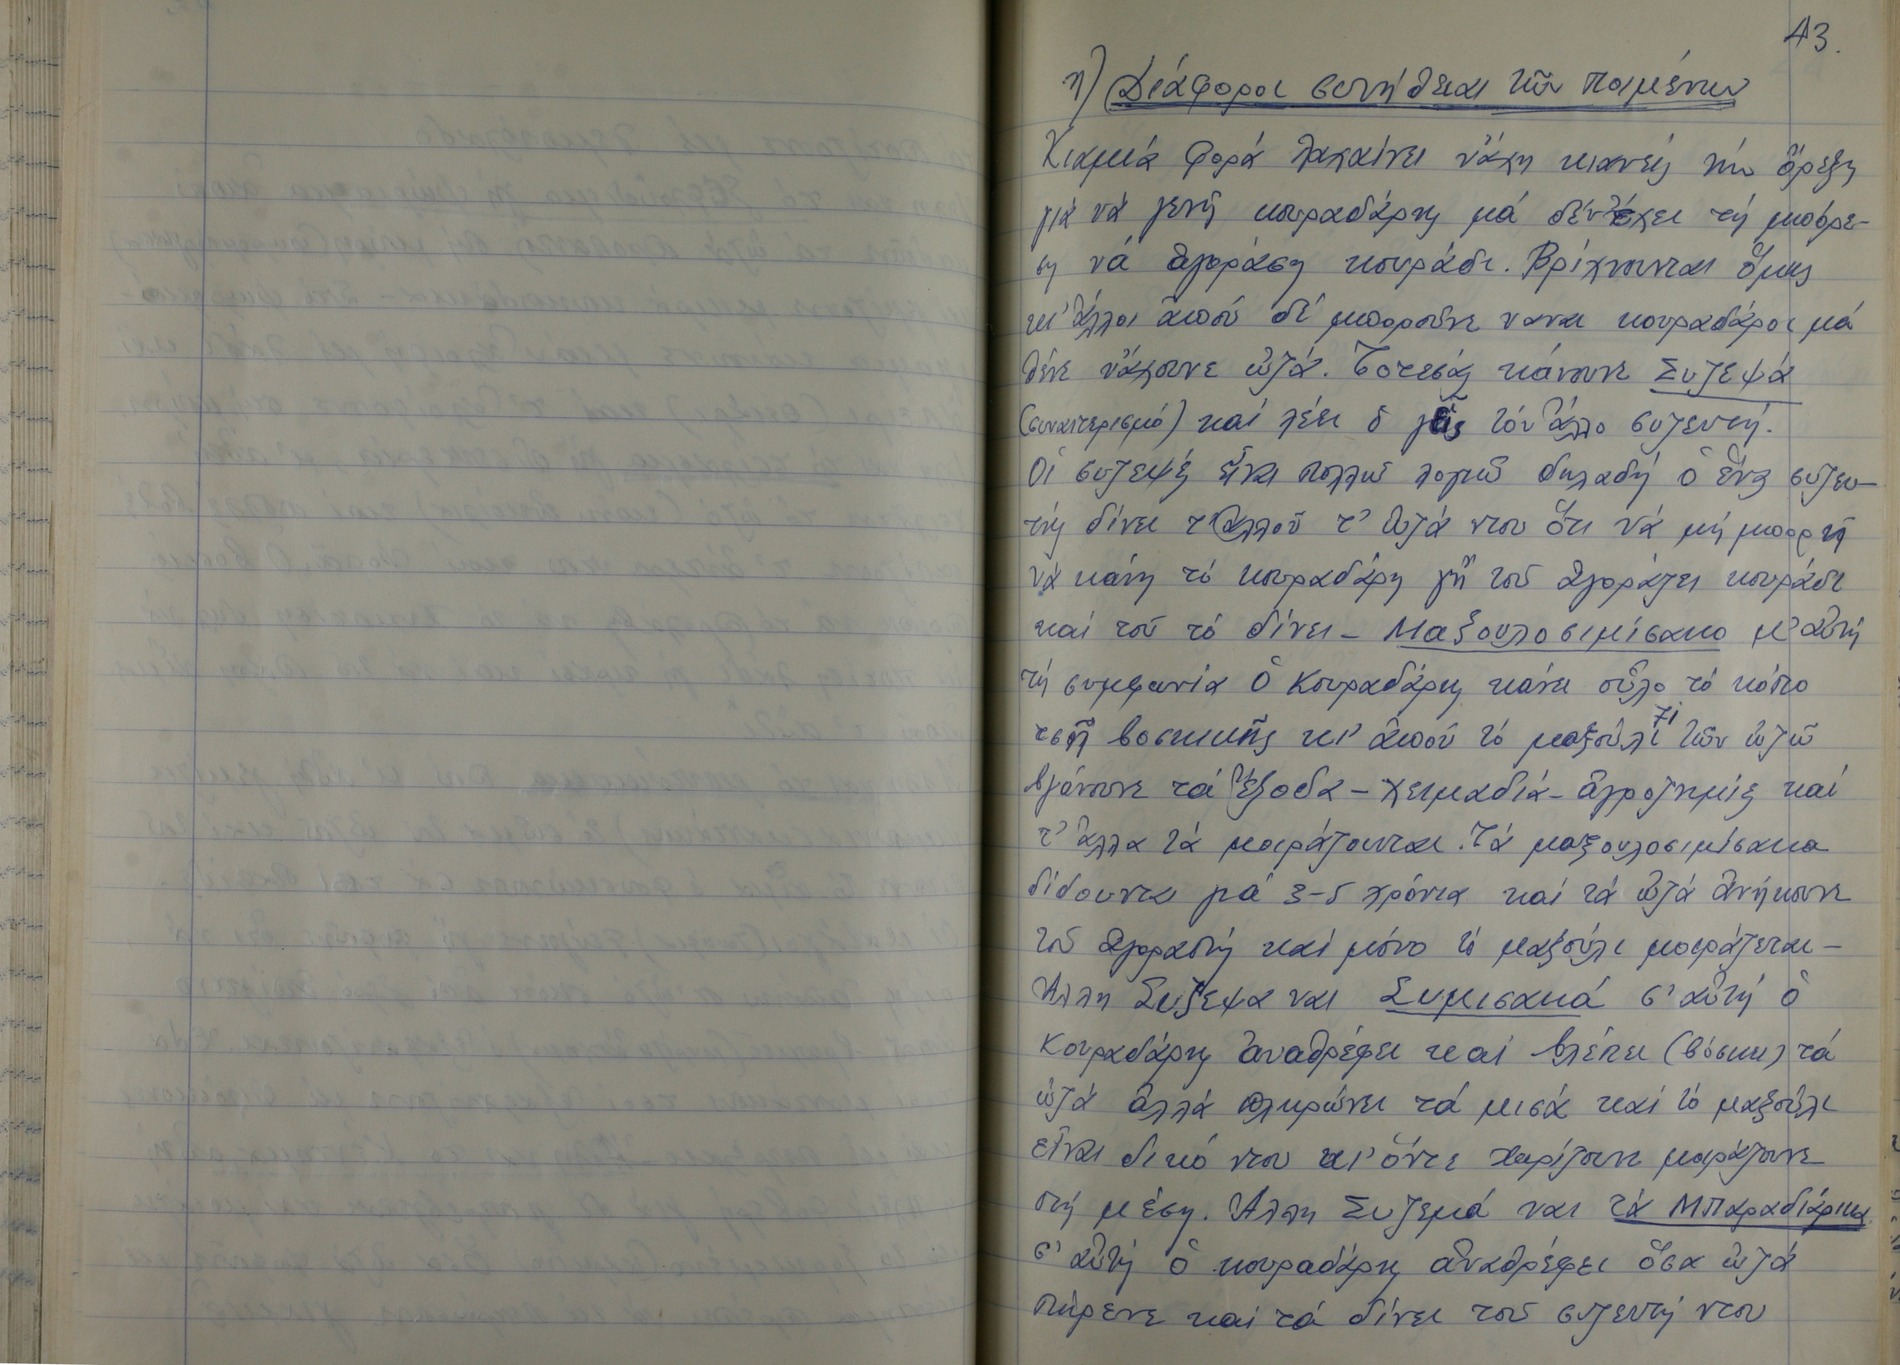 43.
η) Διάφοροι συνήθειαι τῶν ποιμένων
Κιαμιά φορά λαχαίνει νἄχη κιανείς τήν ὄρεξη
γιά νά γενῆ κουραδάρης μά δέν ἔχει τή μπόρε-
ση νά ἀγοράση κουράδι. Βρίχνουνται ὅμως
κι' ἄλλοι ἀπού δέ μποροῦνε νάναι κουραδάροι μά
θένε νἄχουνε ὠζά. Τοτεσάς κάνουνε Συζεψά
(συναιτερισμό) καί λέει ὁ γεῖς τόν ἄλλο συζευτή.
Οἱ συζεψές εἶναι πολλῶ λογιῶ δηλαδή ὁ ἕνας συζευ-
τής δίνει τ' ἀλλοῦ τ' ὠζά ντου ὅτι νά μή μπορῆ
νά κάνη τό κουραδάρη γῆ τοῦ ἀγοράζει κουράδι
καί τοῦ τό δίνει - Μαξουλοσιμίσακο μ' αὐτή
τή συμφωνία ὁ κουραδάρης κάνει οὗλο τό κόπο
τσῆ βοσκικῆς κι' ἀπού τό μαξούλι τῶν ὠζῶ
βγάνουνε τά ἔξοδα - χειμαδιά - ἀγροζημιές καί
τ' ἄλλα τά μοιράζουνται. Τά μαξουλοσιμίσακα
δίδουνται γιά 3-5 χρόνια καί τά ὠζά ἀνήκουνε
τοῦ ἀγοραστή καί μόνο τό μαξούλι μοιράζεται -
Ἄλλη Συζεψά ναι Συμισακά σ' αὐτή ὁ
κουραδάρης ἀναθρέφει καί βλέπει (βόσκει) τά
ὠζά ἀλλά πληρώνει τά μισά καί τό μαξούλι
εἶναι δικό ντου κι' ὄντε χωρίζουνε μοιράζουνε
στή μέση. Ἄλλη Συζεψά ναι τά Μπαραδιάρικα
σ' αὐτή ὁ κουραδάρης ἀναθρέφει ὅσα ὠζά
πήρενε καί τά δίνει τοῦ συζευτή ντου